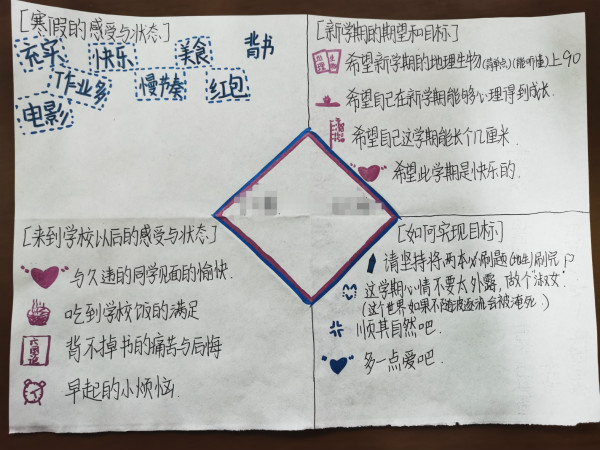 [寒假的感受与状态]
充实 快乐 美食 背书
作业多 慢节奏 红包
电影
[新学期的期望和目标]
希望新学期的地理生物(能听懂)上90
希望自己在新学期能够心理得到成长.
希望自己这学期能长个几厘米.
希望此学期是快乐的.
[来到学校以后的感受与状态]
与久违的同学见面的愉快.
吃到学校饭的满足
背不掉书的痛苦与后悔
早起的小烦恼.
[如何实现目标]
请坚持将两本必刷题(地生)刷完
这学期心情不要太外露,做个"淑女".
(这个世界如果不随波逐流会被淹死.)
顺其自然吧.
多一点爱吧.